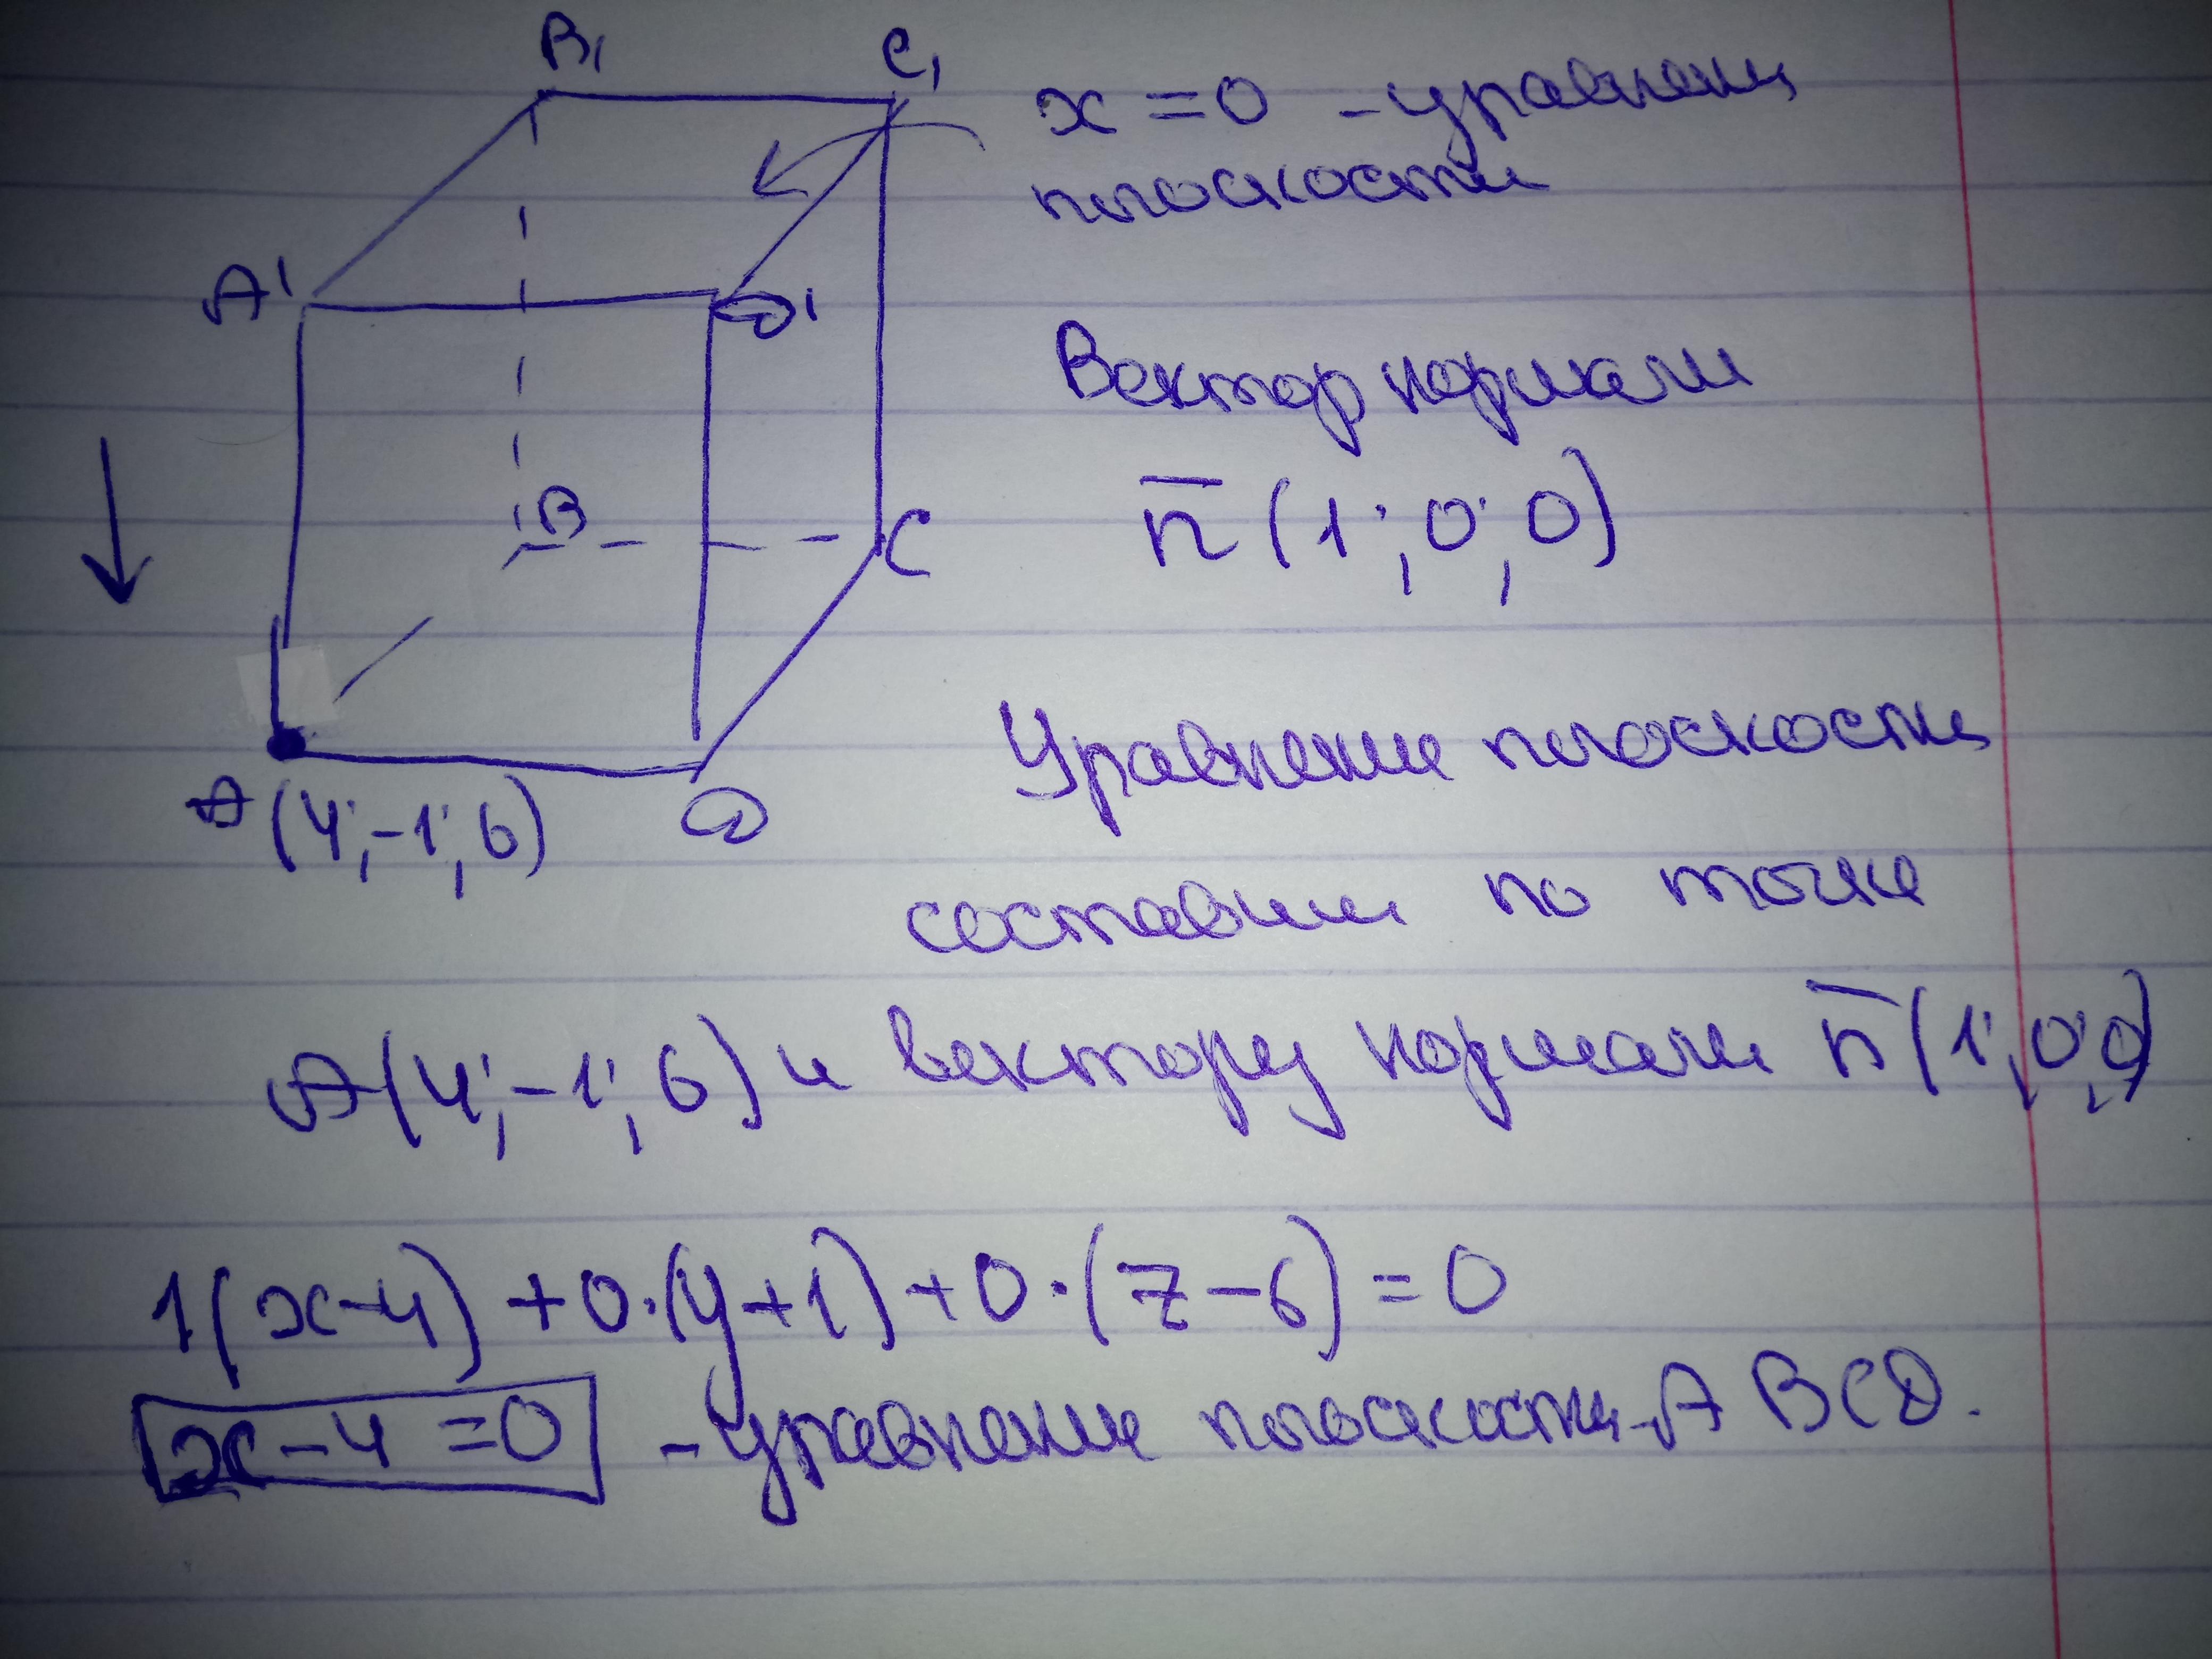 B₁
C₁
x = 0 - уравнение
плоскости
A'
D'
Вектор нормали
n̅ (1; 0; 0)
B
C
A (4; -1; 6)
D
Уравнение плоскости
составим по точке
A (4; -1; 6) и вектору нормали n̅ (1; 0; 0)
1(x-4) + 0·(y+1) + 0·(z-6) = 0
x-4 = 0 - уравнение плоскости ABCD.